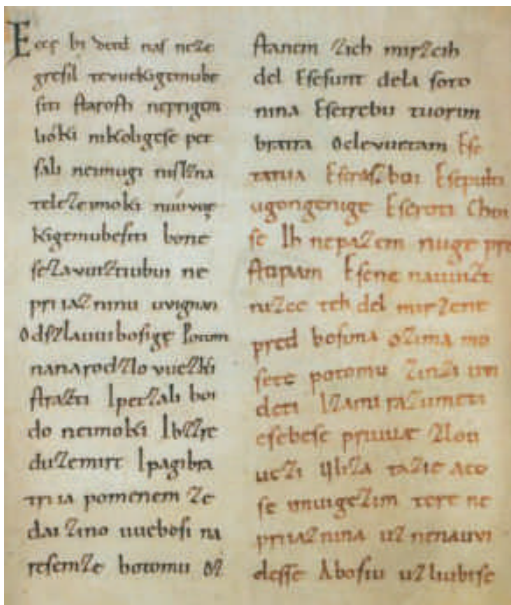 Ecce bi detd naſ neze
greſil tevuekigemube
ſiti ſtaroſti neprigem
lióki nikoligeſe pet
ſali neimugi niſlzna
teleſeimoki nuúvuę
kigemubeſiti bone
ſezavuiztiubui ne
priiazninu uvignan
Odſzlauuiboſigę Potom
nanarodzlovuezki
ſtrazti Ipetzali boi
do neimoki Ibzzre
duzemirt Ipagibra
triia pomenem ze
dai zino uueboſi na
reſemze botomu oz
ſtanem zich mirzcih
del Eſeſunt dela ſoto
nina Eſetrebu tuorim
bratra Oclevuetam Eſe
tatua Eſeraſzboi Eſepulti
ugongenige Eſeroti Choi
ſe Ih nepazem nuge pre
ſtopam Eſene nauuiſzt
nizce teh del mirzene
pred boſima ozima mo
ſete potomu zinzi uvi
deti Izami razumeti
eſebeſe priuuæ zlou
uezi Uliza tazie aco
ſe imuigezim tere ne
priiaznina uznenauvi
deſſe Aboſiu uzliubiſe